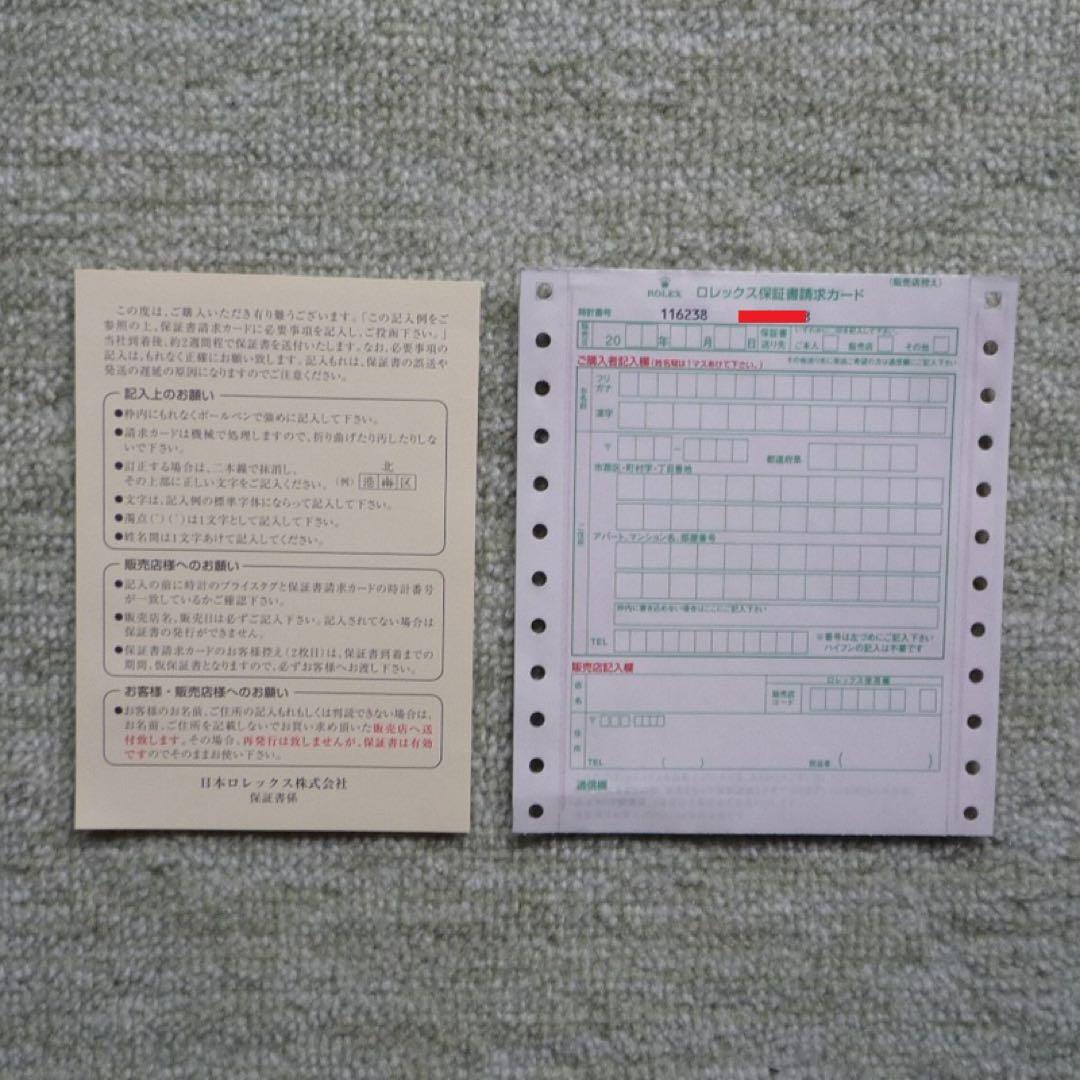 この度は、ご購入いただき有り難うございます。「この記入例をご
参照の上、保証書請求カードに必要事項を記入し、ご投函下さい。」
当社到着後、約2週間程で保証書を送付いたします。なお、必要事項の
記入は、もれなく正確にお願い致します。記入もれは、保証書の誤送や
発送の遅延の原因になりますのでご注意ください。
記入上のお願い
●枠内にもれなくボールペンで強めに記入して下さい。
●請求カードは機械で処理しますので、折り曲げたり汚したりしな
いで下さい。
●訂正する場合は、二本線で抹消し、 北
その上部に正しい文字をご記入ください。(例) 港南区
●文字は、記入例の標準字体にならって記入して下さい。
●濁点(゛)(゜)は1文字として記入して下さい。
●姓名間は1文字あけて記入してください。
販売店様へのお願い
●記入の前に時計のプライスタグと保証書請求カードの時計番号
が一致しているかご確認下さい。
●販売店名、販売日は必ずご記入下さい。記入されてない場合は
保証書の発行ができません。
●保証書請求カードのお客様控え(2枚目)は、保証書到着までの
期間、仮保証書となりますので、必ずお客様へお渡し下さい。
お客様・販売店様へのお願い
●お客様のお名前、ご住所の記入もれもしくは判読できない場合は、
お名前、ご住所を記載しないでお買い求め頂いた販売店へ送
付致します。その場合、再発行は致しませんが、保証書は有効
ですのでそのままお使い下さい。
日本ロレックス株式会社
保証書係
(販売店控え)
ROLEX ロレックス保証書請求カード
時計番号 116238
販売日 20 年 月 日 保証書送り先 ご本人 販売店 その他
ご購入者記入欄(姓名間は1マスあけて下さい。)
お名前
フリガナ
漢字
〒 − 都道府県
市郡区・町村字・丁目番地
ご住所
アパート、マンション名、部屋番号
枠内に書き込めない場合はここにご記入下さい
TEL ※番号は左づめにご記入下さい
ハイフンの記入は不要です
販売店記入欄
店名 ロレックス使用欄
販売店コード
〒
住所
TEL ( ) 担当者 ( )
通信欄